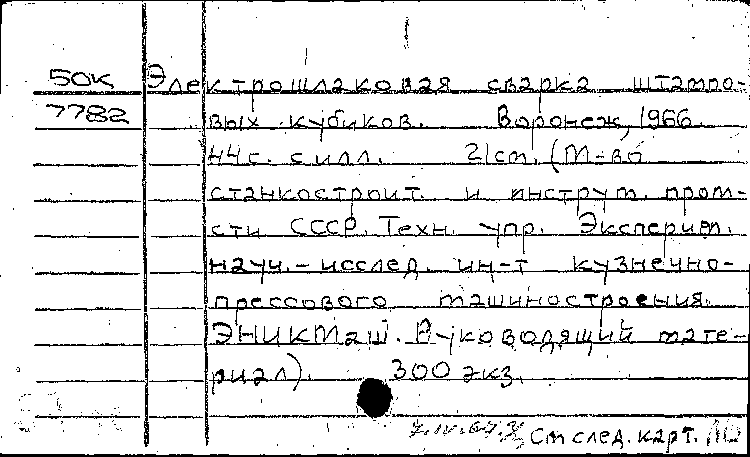 50К Электрошлаковая сварка штампо-
7782 вых кубиков. Воронеж, 1966.
44с. с илл. 21см. (М-во
станкостроит. и инструм. пром-
сти СССР. Техн. упр. Эксперим.
науч.-исслед. ин-т кузнечно-
прессового машиностроения.
ЭНИКМаш. Руководящий мате-
риал). 300 экз.
См след. карт.